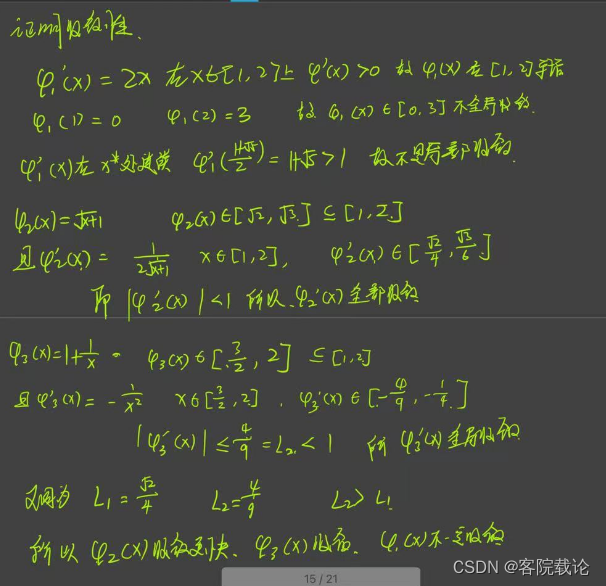 证明收敛性.
φ₁'(x) = 2x 在 x∈[1, 2]上 φ'(x) >0 故 φ₁(x) 在 [1, 2]
φ₁(1) = 0 φ₁(2) = 3 故 φ₁(x) ∈ [0, 3] 不全局收敛.
φ₁'(x)在 x*处连续 φ₁'((1+√5)/2) = 1+√5 > 1 故不局部收敛.
φ₂(x) = √x+1 φ₂(x) ∈ [√2, √3.] ⊆ [1, 2.]
且 φ₂'(x) = 1/(2√x+1) x∈[1, 2], φ₂'(x) ∈ [√2/4, √3/6]
即 |φ₂'(x)| < 1 所以 φ₂'(x) 全部收敛
φ₃(x) = 1+1/x φ₃(x) ∈ [3/2, 2] ⊆ [1, 2]
且 φ₃'(x) = -1/x² x∈[3/2, 2], φ₃'(x) ∈ [-4/9, -1/4]
|φ₃'(x)| ≤ 4/9 = L₂ < 1 所 φ₃'(x) 全局收敛
又因为 L₁ = √2/4 L₂ = 4/9 L₂ > L₁
所以 φ₂(x) 收敛更快. φ₃(x) 收敛. φ₁(x) 不一定收敛
15 / 21
CSDN @客院载论